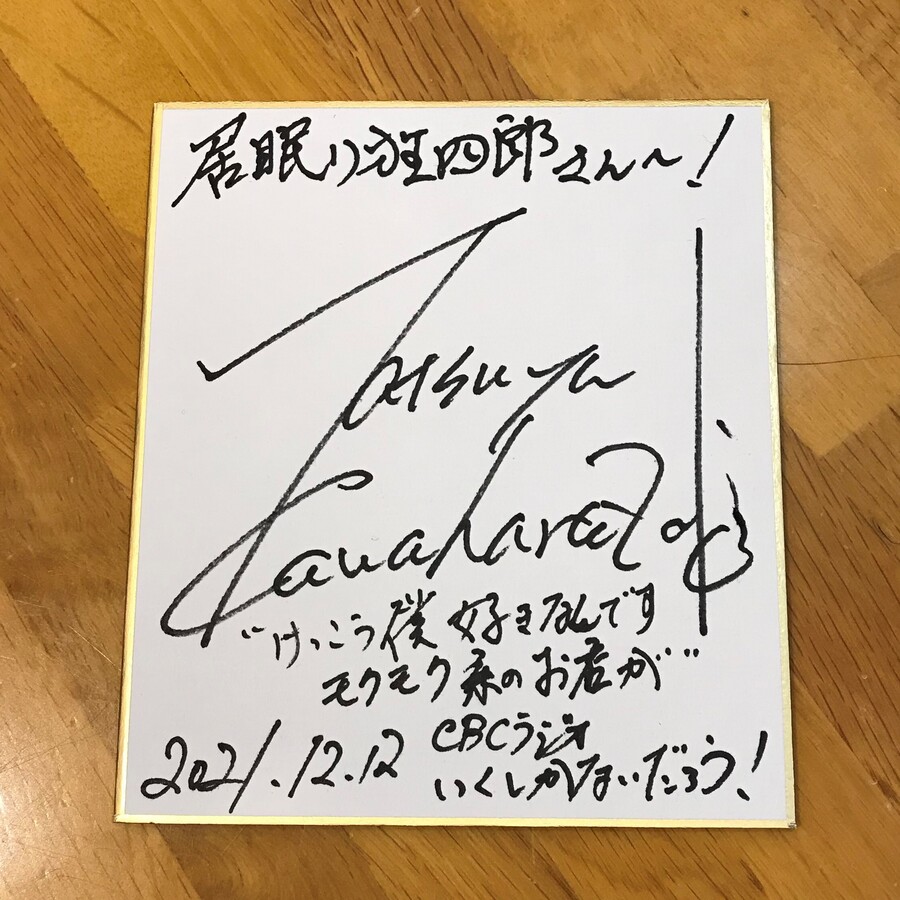 居眠り狂四郎さん〜!
Tatsuya
Kawaharada
"けっこう僕 好きなんです
モクモク系のお店が"
2021.12.12 CBCラジオ
いくしかないだろう!